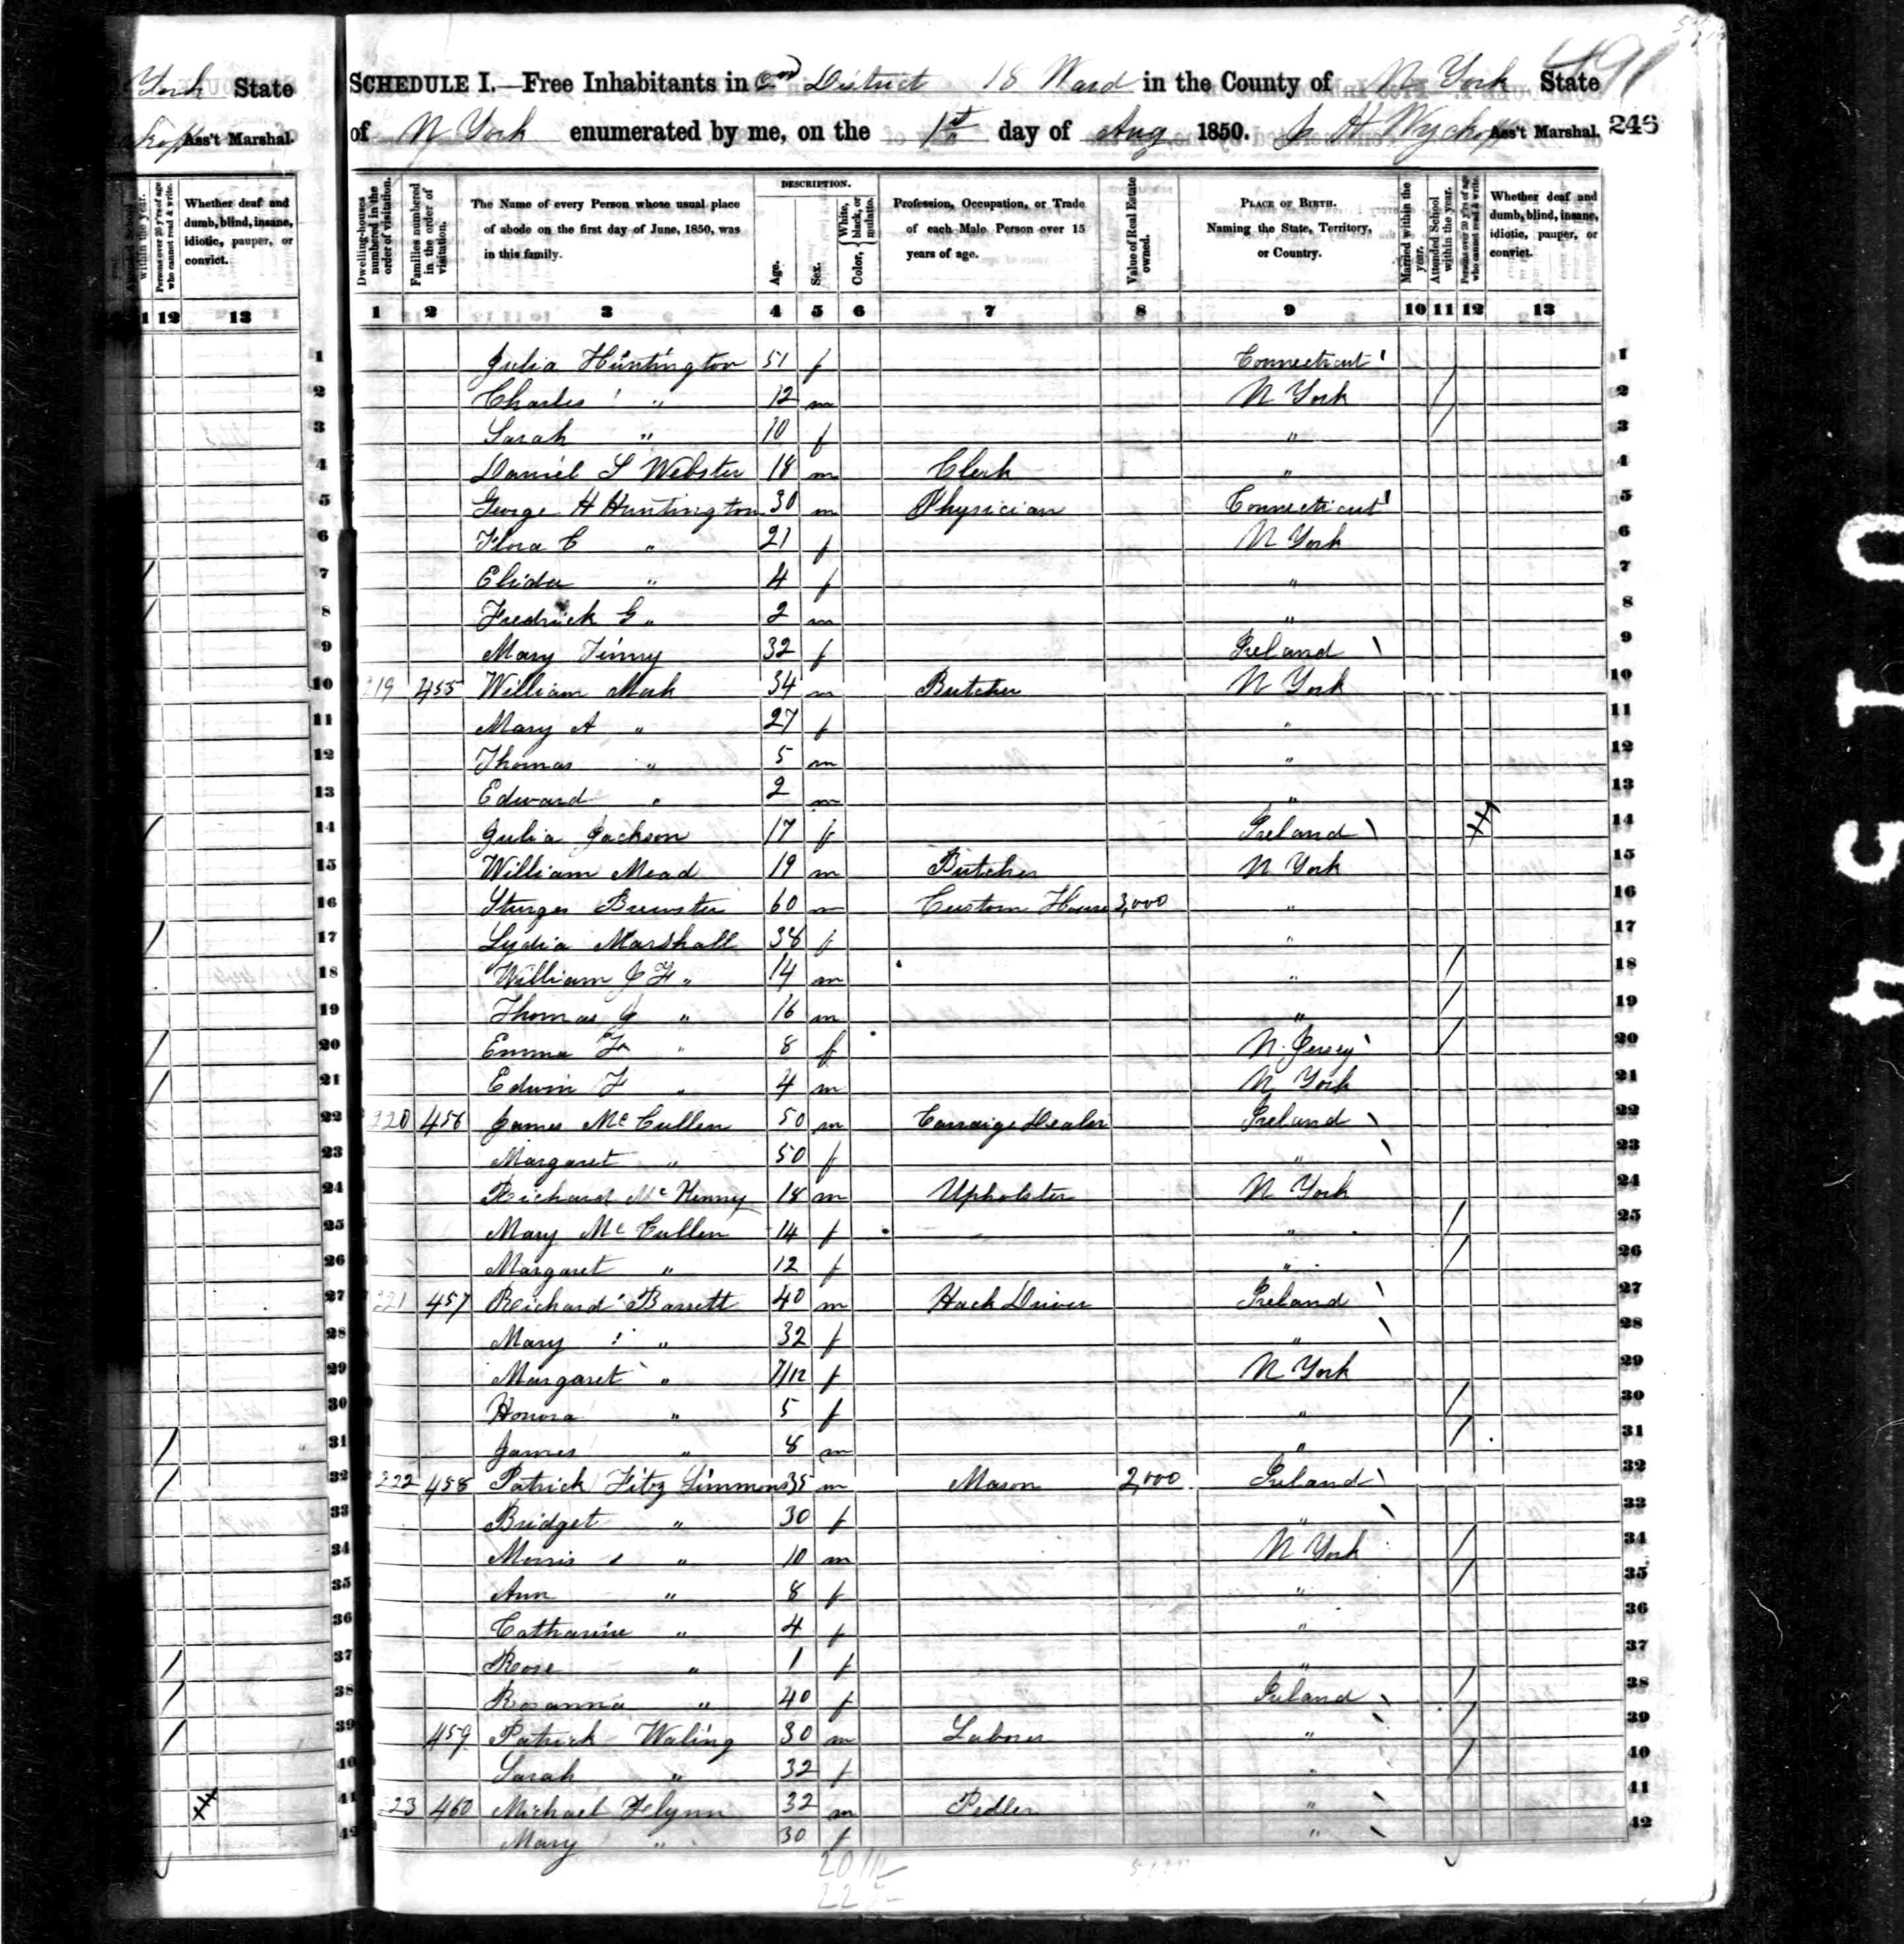 York State
Ass't Marshal.
Persons over 20 y'rs of age who cannot read & write.
Whether deaf and dumb, blind, insane, idiotic, pauper, or convict.
12 13
SCHEDULE I.—Free Inhabitants in District 18 Ward in the County of N York State
of N York enumerated by me, on the 1st day of Aug 1850. H Wyckoff Ass't Marshal. 246
Dwelling-houses numbered in the order of visitation.
Families numbered in the order of visitation.
The Name of every Person whose usual place of abode on the first day of June, 1850, was in this family.
DESCRIPTION.
Age.
Sex.
Color, { White, black, or mulatto.
Profession, Occupation, or Trade of each Male Person over 15 years of age.
Value of Real Estate owned.
PLACE OF BIRTH. Naming the State, Territory, or Country.
Married within the year.
Attended School within the year.
Persons over 20 y'rs of age who cannot read & write.
Whether deaf and dumb, blind, insane, idiotic, pauper, or convict.
1 2 3 4 5 6 7 8 9 10 11 12 13
1 Julia Huntington 51 f Connecticut 1
2 Charles " 12 m N York / 2
3 Sarah " 10 f " / 3
4 Daniel S Webster 18 m Clerk " 4
5 George H Huntington 30 m Physician Connecticut 5
6 Flora C " 21 f N York 6
7 " 4 f " 7
8 Fredrick G " 2 m " 8
9 Mary Finny 32 f Ireland 9
10 219 455 William Mook 34 m Butcher N York 10
11 Mary A " 27 f " 11
12 Thomas " 5 m " 12
13 Edward " 2 m " 13
14 Julia Jackson 17 f Ireland 14
15 William Mead 19 m Butcher N York 15
16 Sturges Brewster 60 m Custom House 3,000 " 16
17 Lydia Marshall 38 f " 17
18 William J F " 14 m " / 18
19 Thomas J " 16 m " / 19
20 Emma F " 8 f N. Jersey / 20
21 Edwin F " 4 m N York 21
22 220 456 James McCullen 50 m Carraige Dealer Ireland 22
23 Margaret " 50 f " 23
24 Richard McKenny 18 m Upholster N York 24
25 Mary McCullen 14 f " / 25
26 Margaret " 12 f " / 26
27 221 457 Richard Barrett 40 m Hack Driver Ireland 27
28 Mary " 32 f " 28
29 Margaret " 7/12 f N York 29
30 Honora " 5 f " / 30
31 James " 8 m " / 31
32 222 458 Patrick Fitz Simmons 35 m Mason 2,000 Ireland 32
33 Bridget " 30 f " 33
34 Morris " 10 m N York / 34
35 Ann " 8 f " / 35
36 Catharine " 4 f " 36
37 Rose " 1 f " 37
38 Rosanna " 40 f Ireland / 38
39 459 Patrick Waling 30 m Laborer " / 39
40 Sarah " 32 f " / 40
41 223 460 Michael Flynn 32 m Pedler " 41
42 Mary " 30 f " 42